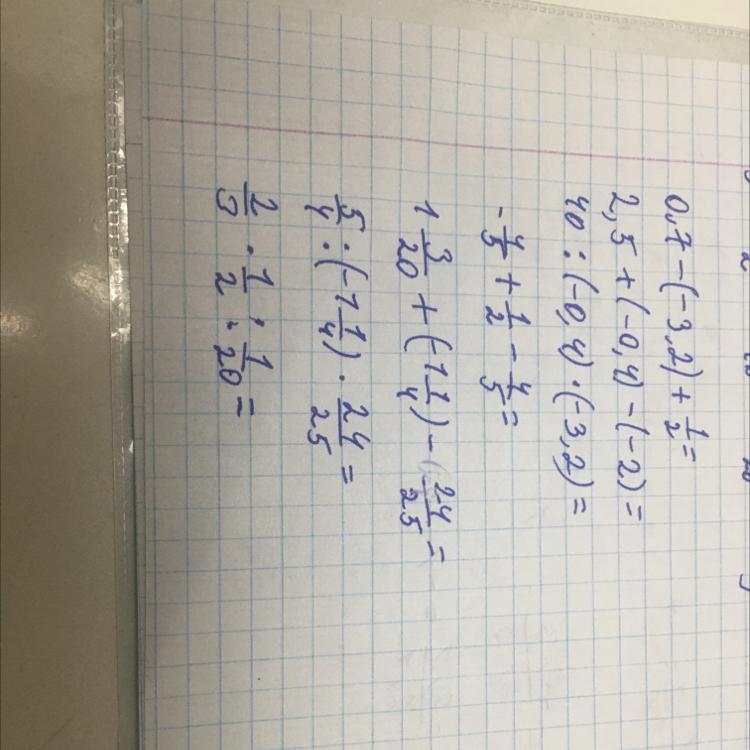 0,7 - (-3,2) + 1/2 =
2,5 + (-0,4) - (-2) =
40 : (-0,4) · (-3,2) =
- 4/5 + 1/2 - 4/5 =
1 3/20 + (-1 1/4) - 24/25 =
5/4 : (-1 1/4) · 24/25 =
2/3 · 1/2 : 1/20 =